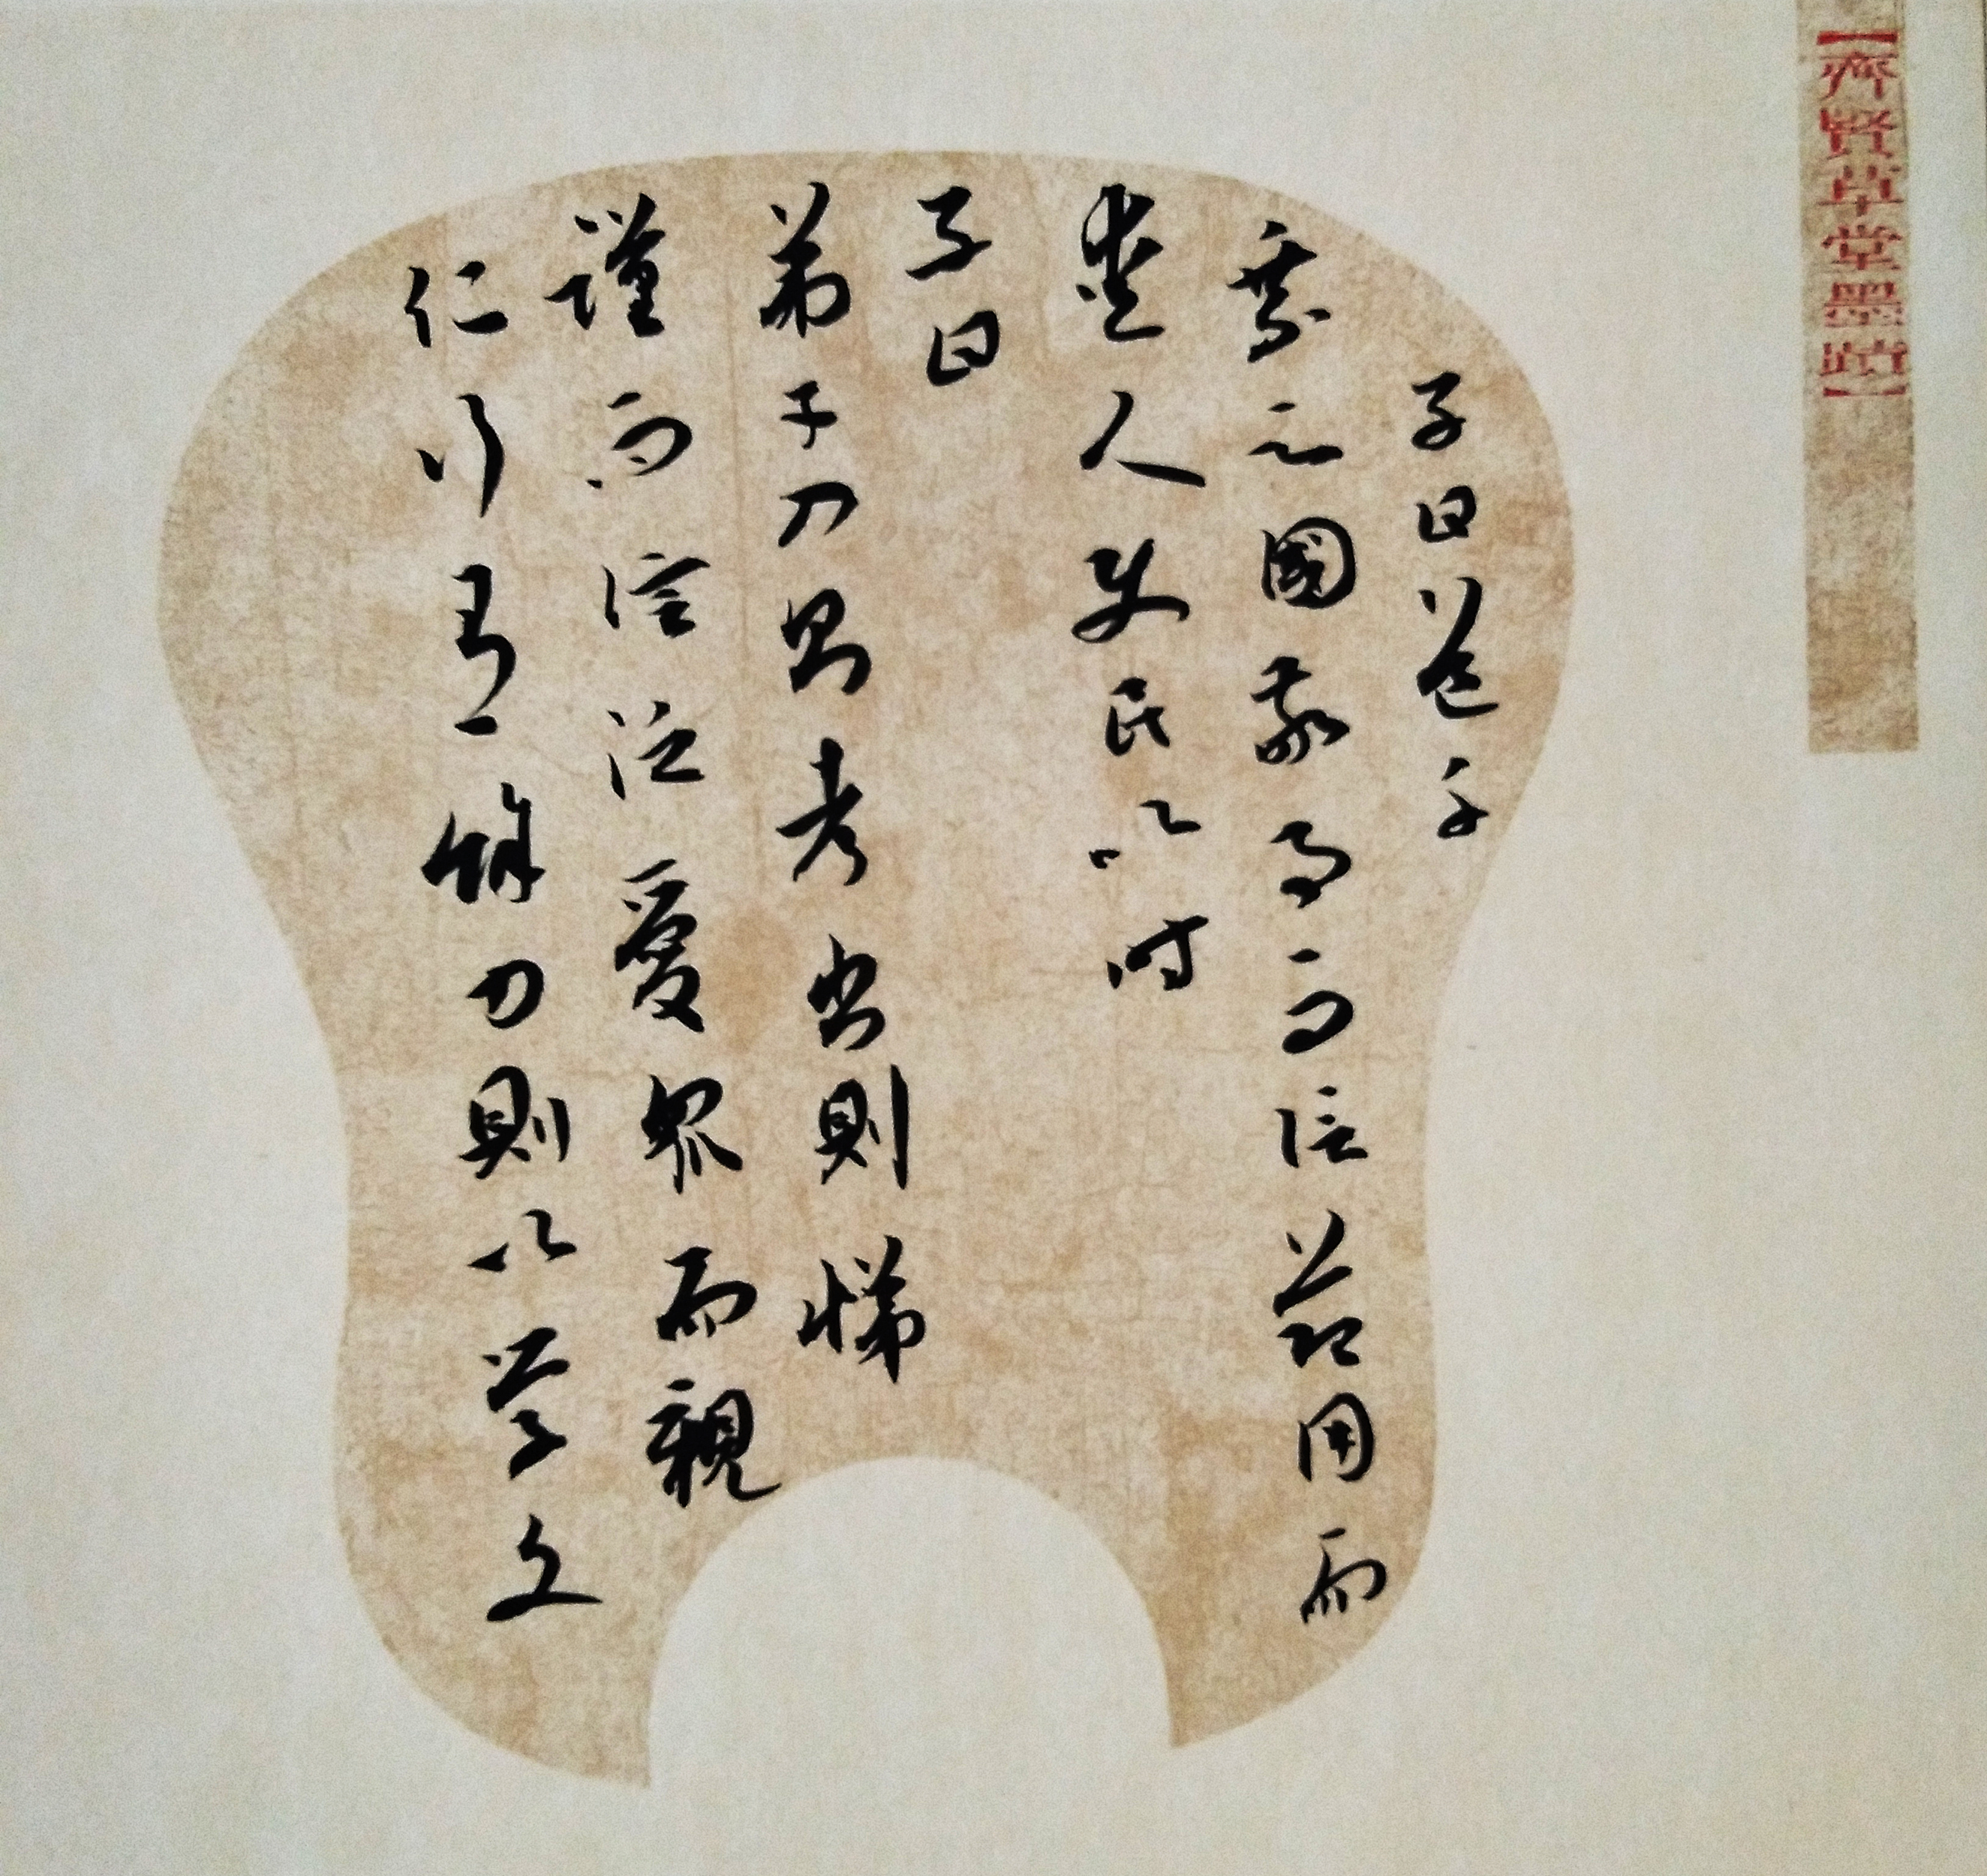 【齊賢草堂墨蹟】
子曰道千
乘之國敬事而信節用而
愛人使民以時
子曰
弟子入則孝出則悌
謹而信泛愛眾而親
仁行有餘力則以學文